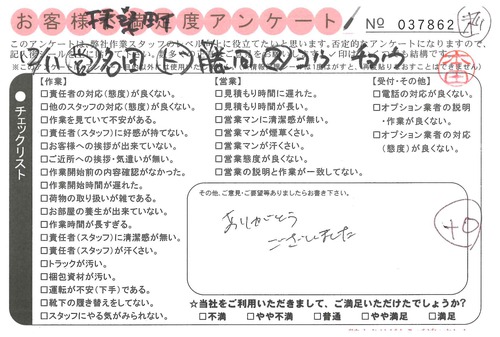 お客様 度アンケート
No 037862
このアンケートは、弊社作業スタッフのレベル向上に役立てたいと思います。否定的なアンケートになりますので、
チェックリスト
【作業】
□責任者の対応(態度)が良くない。
□他のスタッフの対応(態度)が良くない。
□作業を見ていて不安がある。
□責任者(スタッフ)に好感が持てない。
□お客様への挨拶が出来ていない。
□ご近所への挨拶・気遣いが無い。
□作業開始前の内容確認がなかった。
□作業開始時間が遅れた。
□荷物の取り扱いが雑である。
□お部屋の養生が出来ていない。
□作業時間が長すぎる。
□責任者(スタッフ)に清潔感が無い。
□責任者(スタッフ)が汗くさい。
□トラックが汚い。
□梱包資材が汚い。
□運転が不安(下手)である。
□靴下の履き替えをしてない。
□スタッフにやる気がみられない。
【営業】
□見積もり時間に遅れた。
□見積もり時間が長い。
□営業マンに清潔感が無い。
□営業マンが煙草くさい。
□営業マンが汗くさい。
□営業態度が良くない。
□営業の説明と作業が一致してない。
【受付・その他】
□電話の対応が良くない。
□オプション業者の説明
・作業が良くない。
□オプション業者の対応
(態度)が良くない。
その他、ご意見・ご要望等ありましたらお書き下さい。
ありがとう
ございました
+0
☆当社をご利用いただきまして、ご満足いただけたでしょうか?
□不満 □やや不満 □普通 □やや満足 □満足